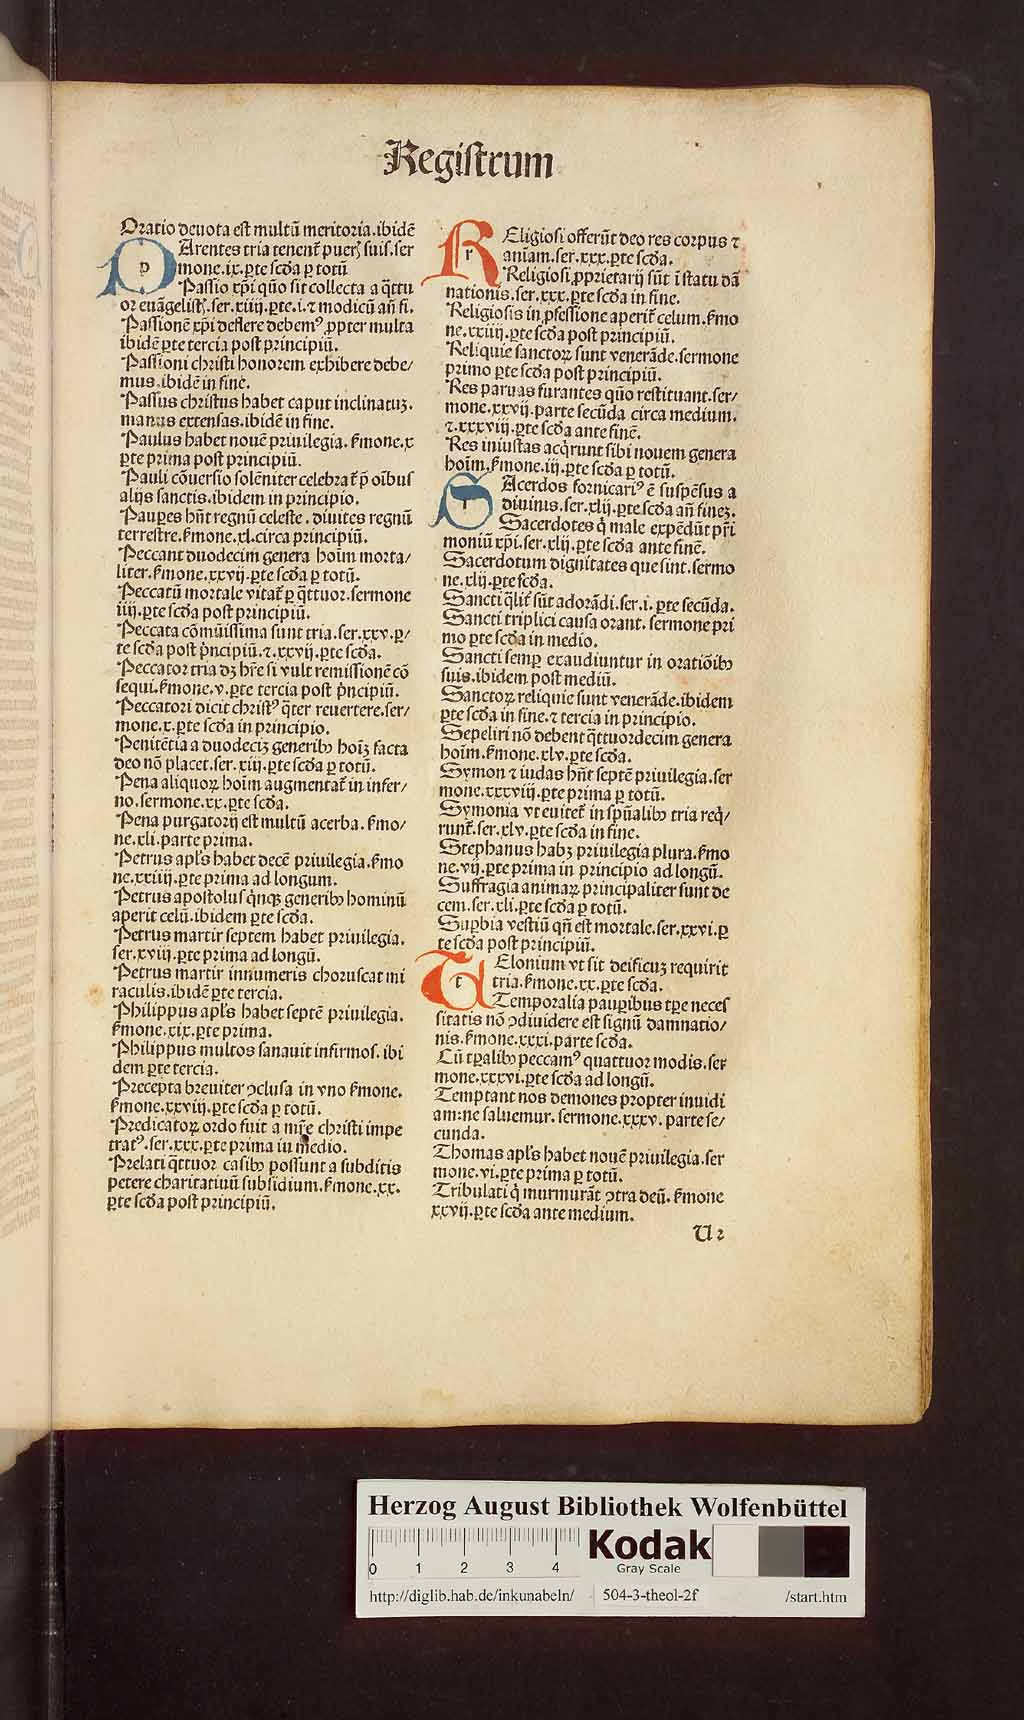 Registrum
Oratio deuota est multū meritoria.ibidē
PArentes tria tenent̄ pueris suis.ser
mone.ix.ꝑte scd̄a ꝑ totū
Passio xp̄i quō sit collecta a q̄ttu
or euāgelist͛.ser.xiiij.ꝑte.i.⁊ modicū an̄ fi.
Passionē xp̄i deflere debemꝰ ꝓpter multa
ibidē ꝑte tercia post principiū.
Passioni christi honorem exhibere debe/
mus.ibidē in fine.
Passus christus habet caput inclinatuꝫ.
manus extensas.ibidē in fine.
Paulus habet nouē priuilegia.ẜmone.x
ꝑte prima post principiū.
Pauli cōuersio solēniter celebrat̄ p̄ oībus
alijs sanctis.ibidem in principio.
Pauꝑes hn̄t regnū celeste.diuites regnū
terrestre.ẜmone.xl.circa principiū.
Peccant duodecim genera hoīm morta/
liter.ẜmone.xxvij.ꝑte scd̄a ꝑ totū.
Peccatū mortale vitat̄ ꝑ q̄ttuor.sermone
iiij.ꝑte scd̄a post principiū.
Peccata cōmūissima sunt tria.ser.xxv.ꝑ/
te scd̄a post p̄ncipiū.⁊.xxvij.ꝑte scd̄a.
Peccator tria dꝫ hr̄e si vult remissionē cō
sequi.ẜmone.v.ꝑte tercia post p̄ncipiū.
Peccatori dicit christꝰ q̄ter reuertere.ser/
mone.x.ꝑte scd̄a in principio.
Penitētia a duodecīꝫ generibꝫ hoīꝫ facta
deo nō placet.ser.xiij.ꝑte scd̄a ꝑ totū.
Pena aliquoꝝ hoīm augmentat̄ in infer/
no.sermone.xx.ꝑte scd̄a.
Pena purgatorij est multū acerba.ẜmo/
ne.xli.parte prima.
Petrus apl̄s habet decē priuilegia.ẜmo
ne.xxiiij.ꝑte prima ad longum.
Petrus apostolus q̄nqꝫ generibꝫ hominū
aperit celū.ibidem ꝑte scd̄a.
Petrus martir septem habet priuilegia.
ser.xviij.ꝑte prima ad longū.
Petrus martir innumeris choruscat mi
raculis.ibidē ꝑte tercia.
Philippus apl̄s habet septē priuilegia.
ẜmone.xix.ꝑte prima.
Philippus multos sanauit infirmos.ibi
dem ꝑte tercia.
Precepta breuiter ↄclusa in vno ẜmone.
ẜmone.xxviij.ꝑte scd̄a ꝑ totū.
Predicatoꝝ ordo fuit a mr̄e christi impe
tratꝰ.ser.xxx.ꝑte prima in medio.
Prelati q̄ttuor casibꝫ possunt a subditis
petere charitatiuū subsidium.ẜmone.xx.
ꝑte scd̄a post principiū.
REligiosi offerūt deo res corpus ⁊
aniām.ser.xxx.ꝑte scd̄a.
Religiosi ꝓprietarij sūt ī statu dā
nationis.ser.xxx.ꝑte scd̄a in fine.
Religiosis in ꝓfessione aperit̄ celum.ẜmo
ne.xxiiij.ꝑte scd̄a post principiū.
Reliquie sanctoꝝ sunt venerāde.sermone
primo ꝑte scd̄a post principiū.
Res paruas furantes quō restituant.ser/
mone.xxvij.parte secūda circa medium.
⁊.xxxviij.ꝑte scd̄a ante finē.
Res iniustas acq̄runt sibi nouem genera
hoīm.ẜmone.iij.ꝑte scd̄a ꝑ totū.
SAcerdos fornicariꝰ ē suspēsus a
diuinis.ser.xlij.ꝑte scd̄a an̄ fineꝫ.
Sacerdotes q̄ male expēdūt pr̄i
moniū xp̄i.ser.xlij.ꝑte scd̄a ante finē.
Sacerdotum dignitates que sint.sermo
ne.xlij.ꝑte scd̄a.
Sancti q̄lit̄ sūt adorādi.ser.i.ꝑte secūda.
Sancti triplici causa orant.sermone pri
mo ꝑte scd̄a in medio.
Sancti semꝑ exaudiuntur in oratiōibꝫ
suis.ibidem post mediū.
Sanctoꝝ reliquie sunt venerāde.ibidem
ꝑte scd̄a in fine.⁊ tercia in principio.
Sepeliri nō debent q̄ttuordecim genera
hoīm.ẜmone.xlv.ꝑte scd̄a.
Symon ⁊ iudas hn̄t septē priuilegia.ser
mone.xxxviij.ꝑte prima ꝑ totū.
Symonia vt euitet̄ in sp̄ualibꝫ tria req̄/
runt̄.ser.xlv.ꝑte scd̄a in fine.
Stephanus habꝫ priuilegia plura.ẜmo
ne.vij.ꝑte prima in principio ad longū.
Suffragia animaꝝ principaliter sunt de
cem.ser.xli.ꝑte scd̄a ꝑ totū.
Suꝑbia vestiū qn̄ est mortale.ser.xxvi.ꝑ
te scd̄a post principiū.
TElonium vt sit deificuꝫ requirit
tria.ẜmone.xx.ꝑte scd̄a.
Temporalia pauꝑibus tꝑe neces
sitatis nō ↄdiuidere est signū damnatio/
nis.ẜmone.xxxi.parte scd̄a.
Cū tꝑalibꝫ peccamꝰ quattuor modis.ser
mone.xxxvi.ꝑte scd̄a ad longū.
Temptant nos demones propter inuidi
am:ne saluemur.sermone.xxxv.parte se/
cunda.
Thomas apl̄s habet nouē priuilegia.ser
mone.vi.ꝑte prima ꝑ totū.
Tribulati q̄ murmurāt ↄtra deū.ẜmone
xxvij.ꝑte scd̄a ante medium.
U 2
Herzog August Bibliothek Wolfenbüttel
0 1 2 3 4
Kodak
Gray Scale
http://diglib.hab.de/inkunabeln/ 504-3-theol-2f /start.htm